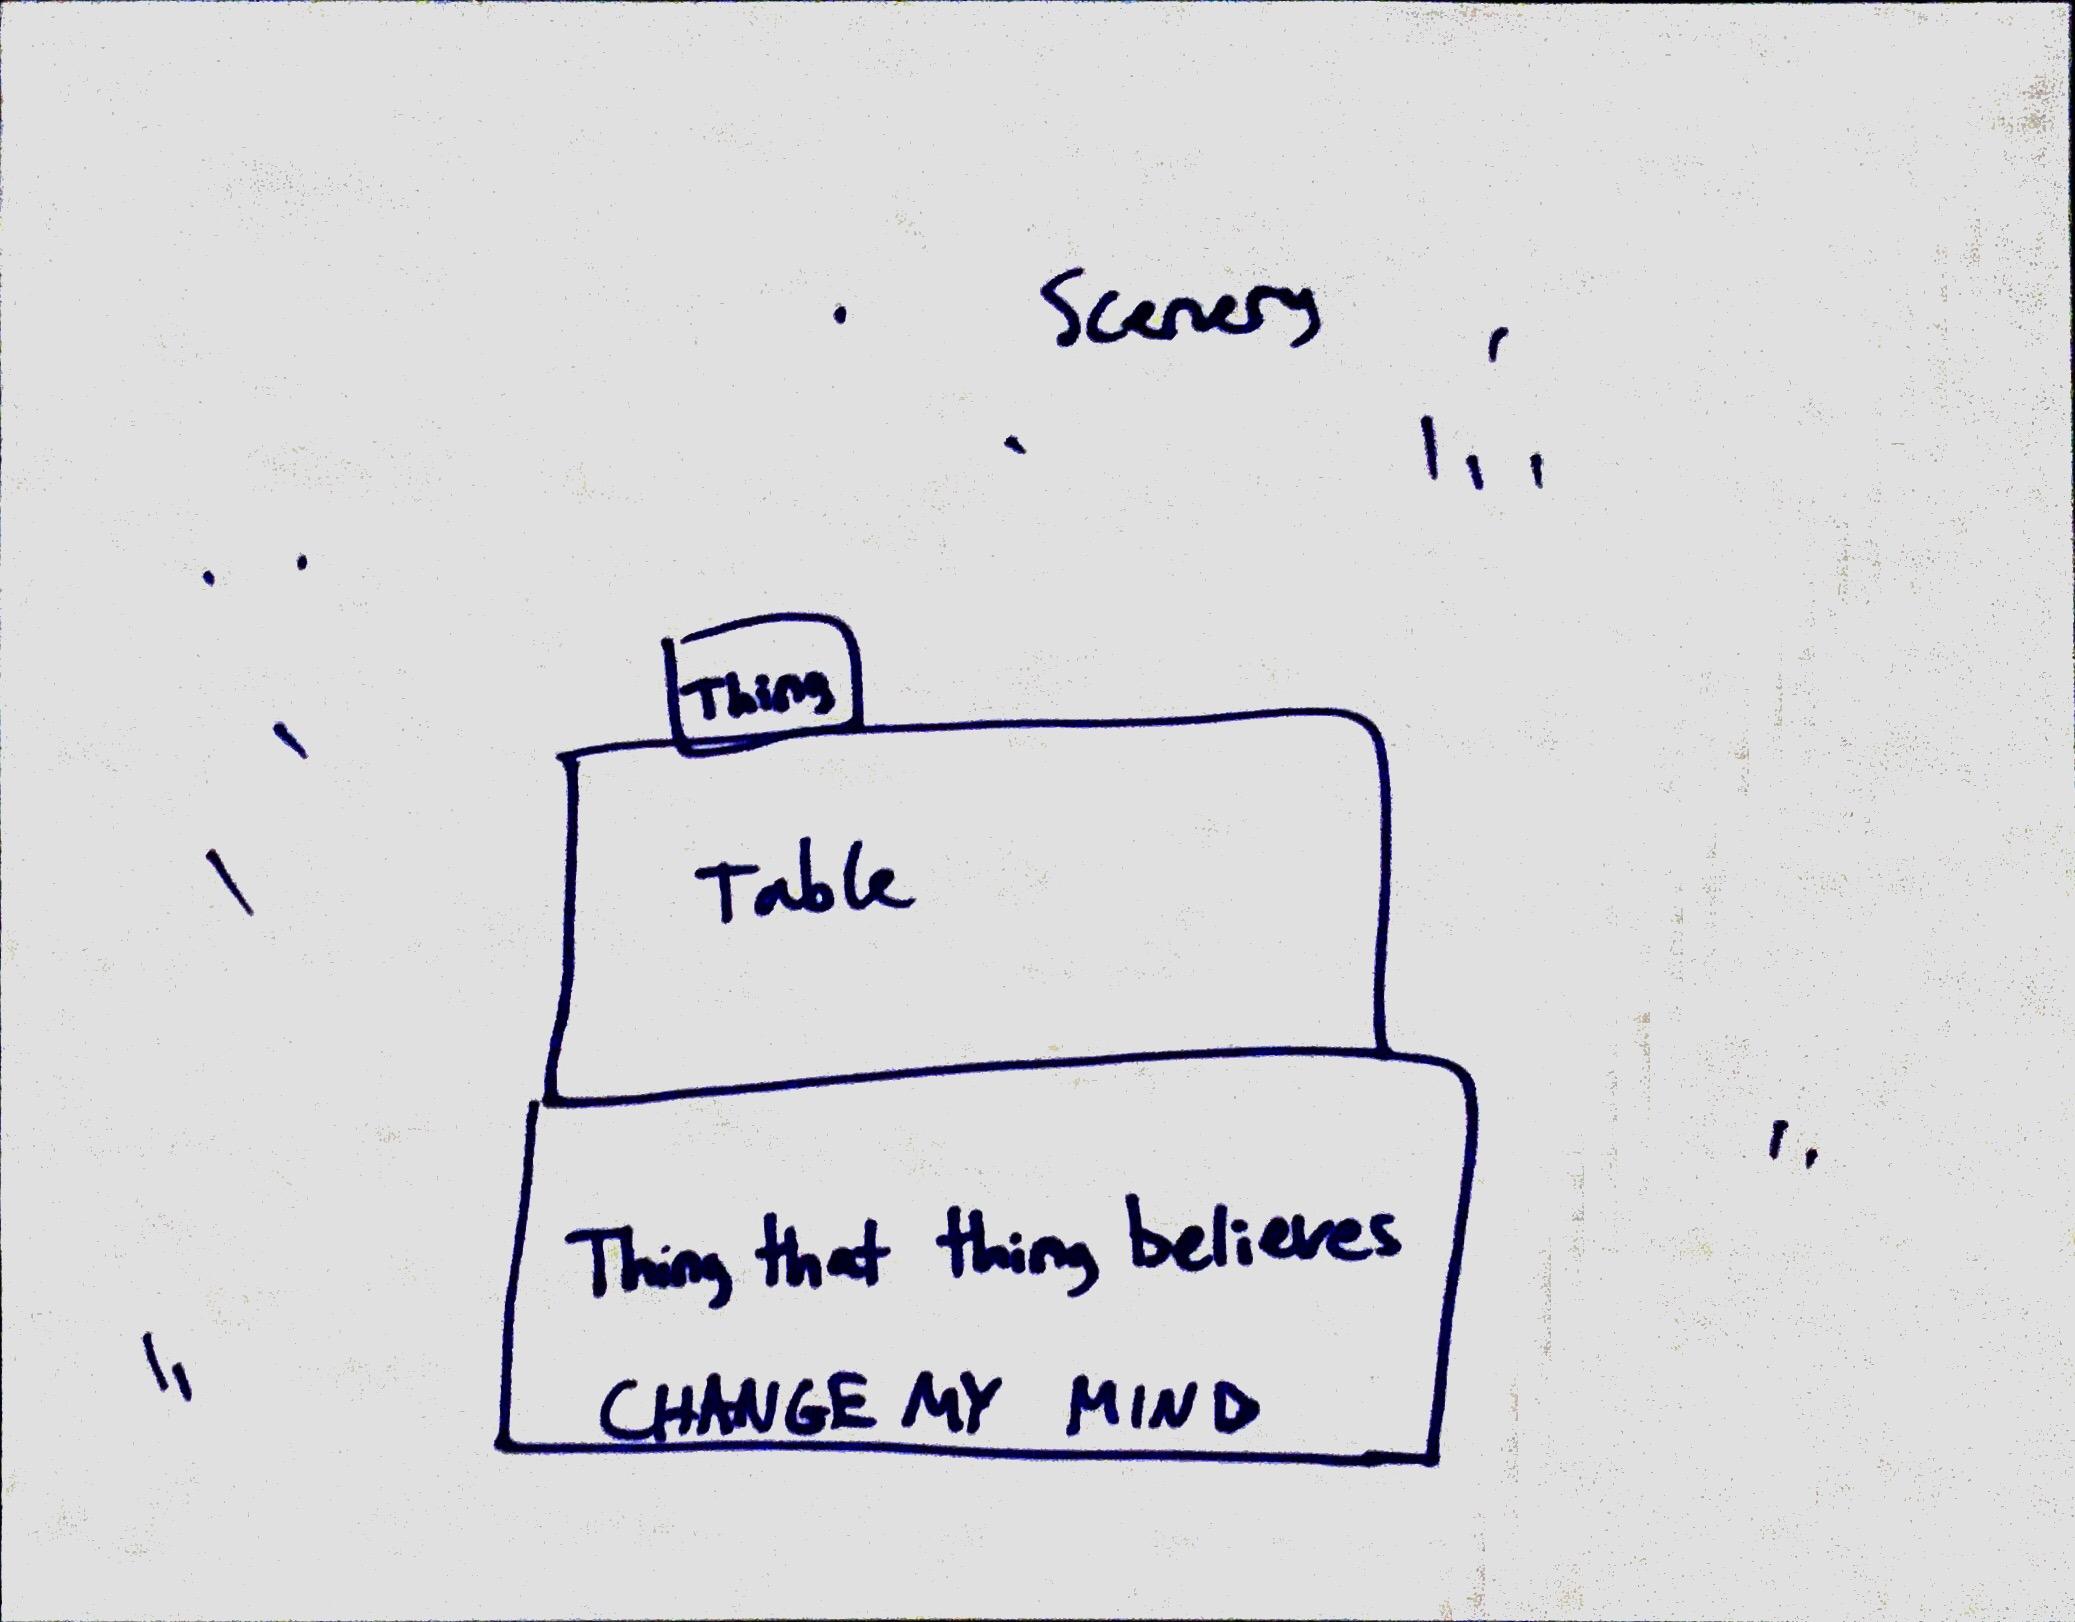 Scenery
Thing
Table
Thing that thing believes
CHANGE MY MIND